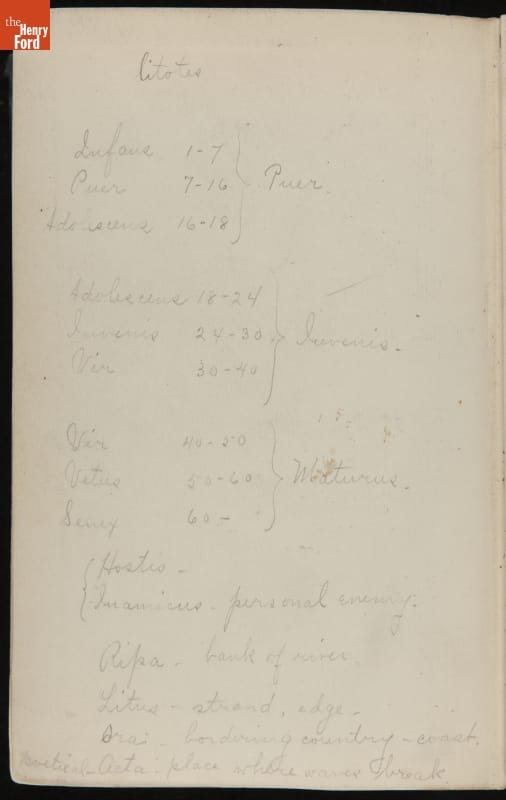 the
Henry
Ford
Citotes
Infans 1-7
Puer 7-16 Puer.
Adolescens 16-18
Adolescens 18-24
Iuvenis 24-30 Iuvenis.
Vir 30-40
Vir 40-50
Vetus 50-60 Maturus.
Senex 60-
Hostis -
Inamicus - personal enemy.
Ripa - bank of river.
Litus - strand, edge -
Ora - bordering country - coast.
poetical - Acta - place where waves break